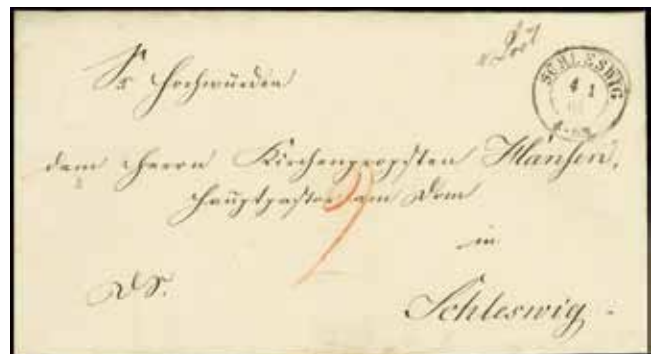 SCHLESWIG
4 1
Sr Hochwürden
dem Herrn Kirchenpropsten Hansen,
Hauptpastor am Dom
in
DS.
Schleswig.